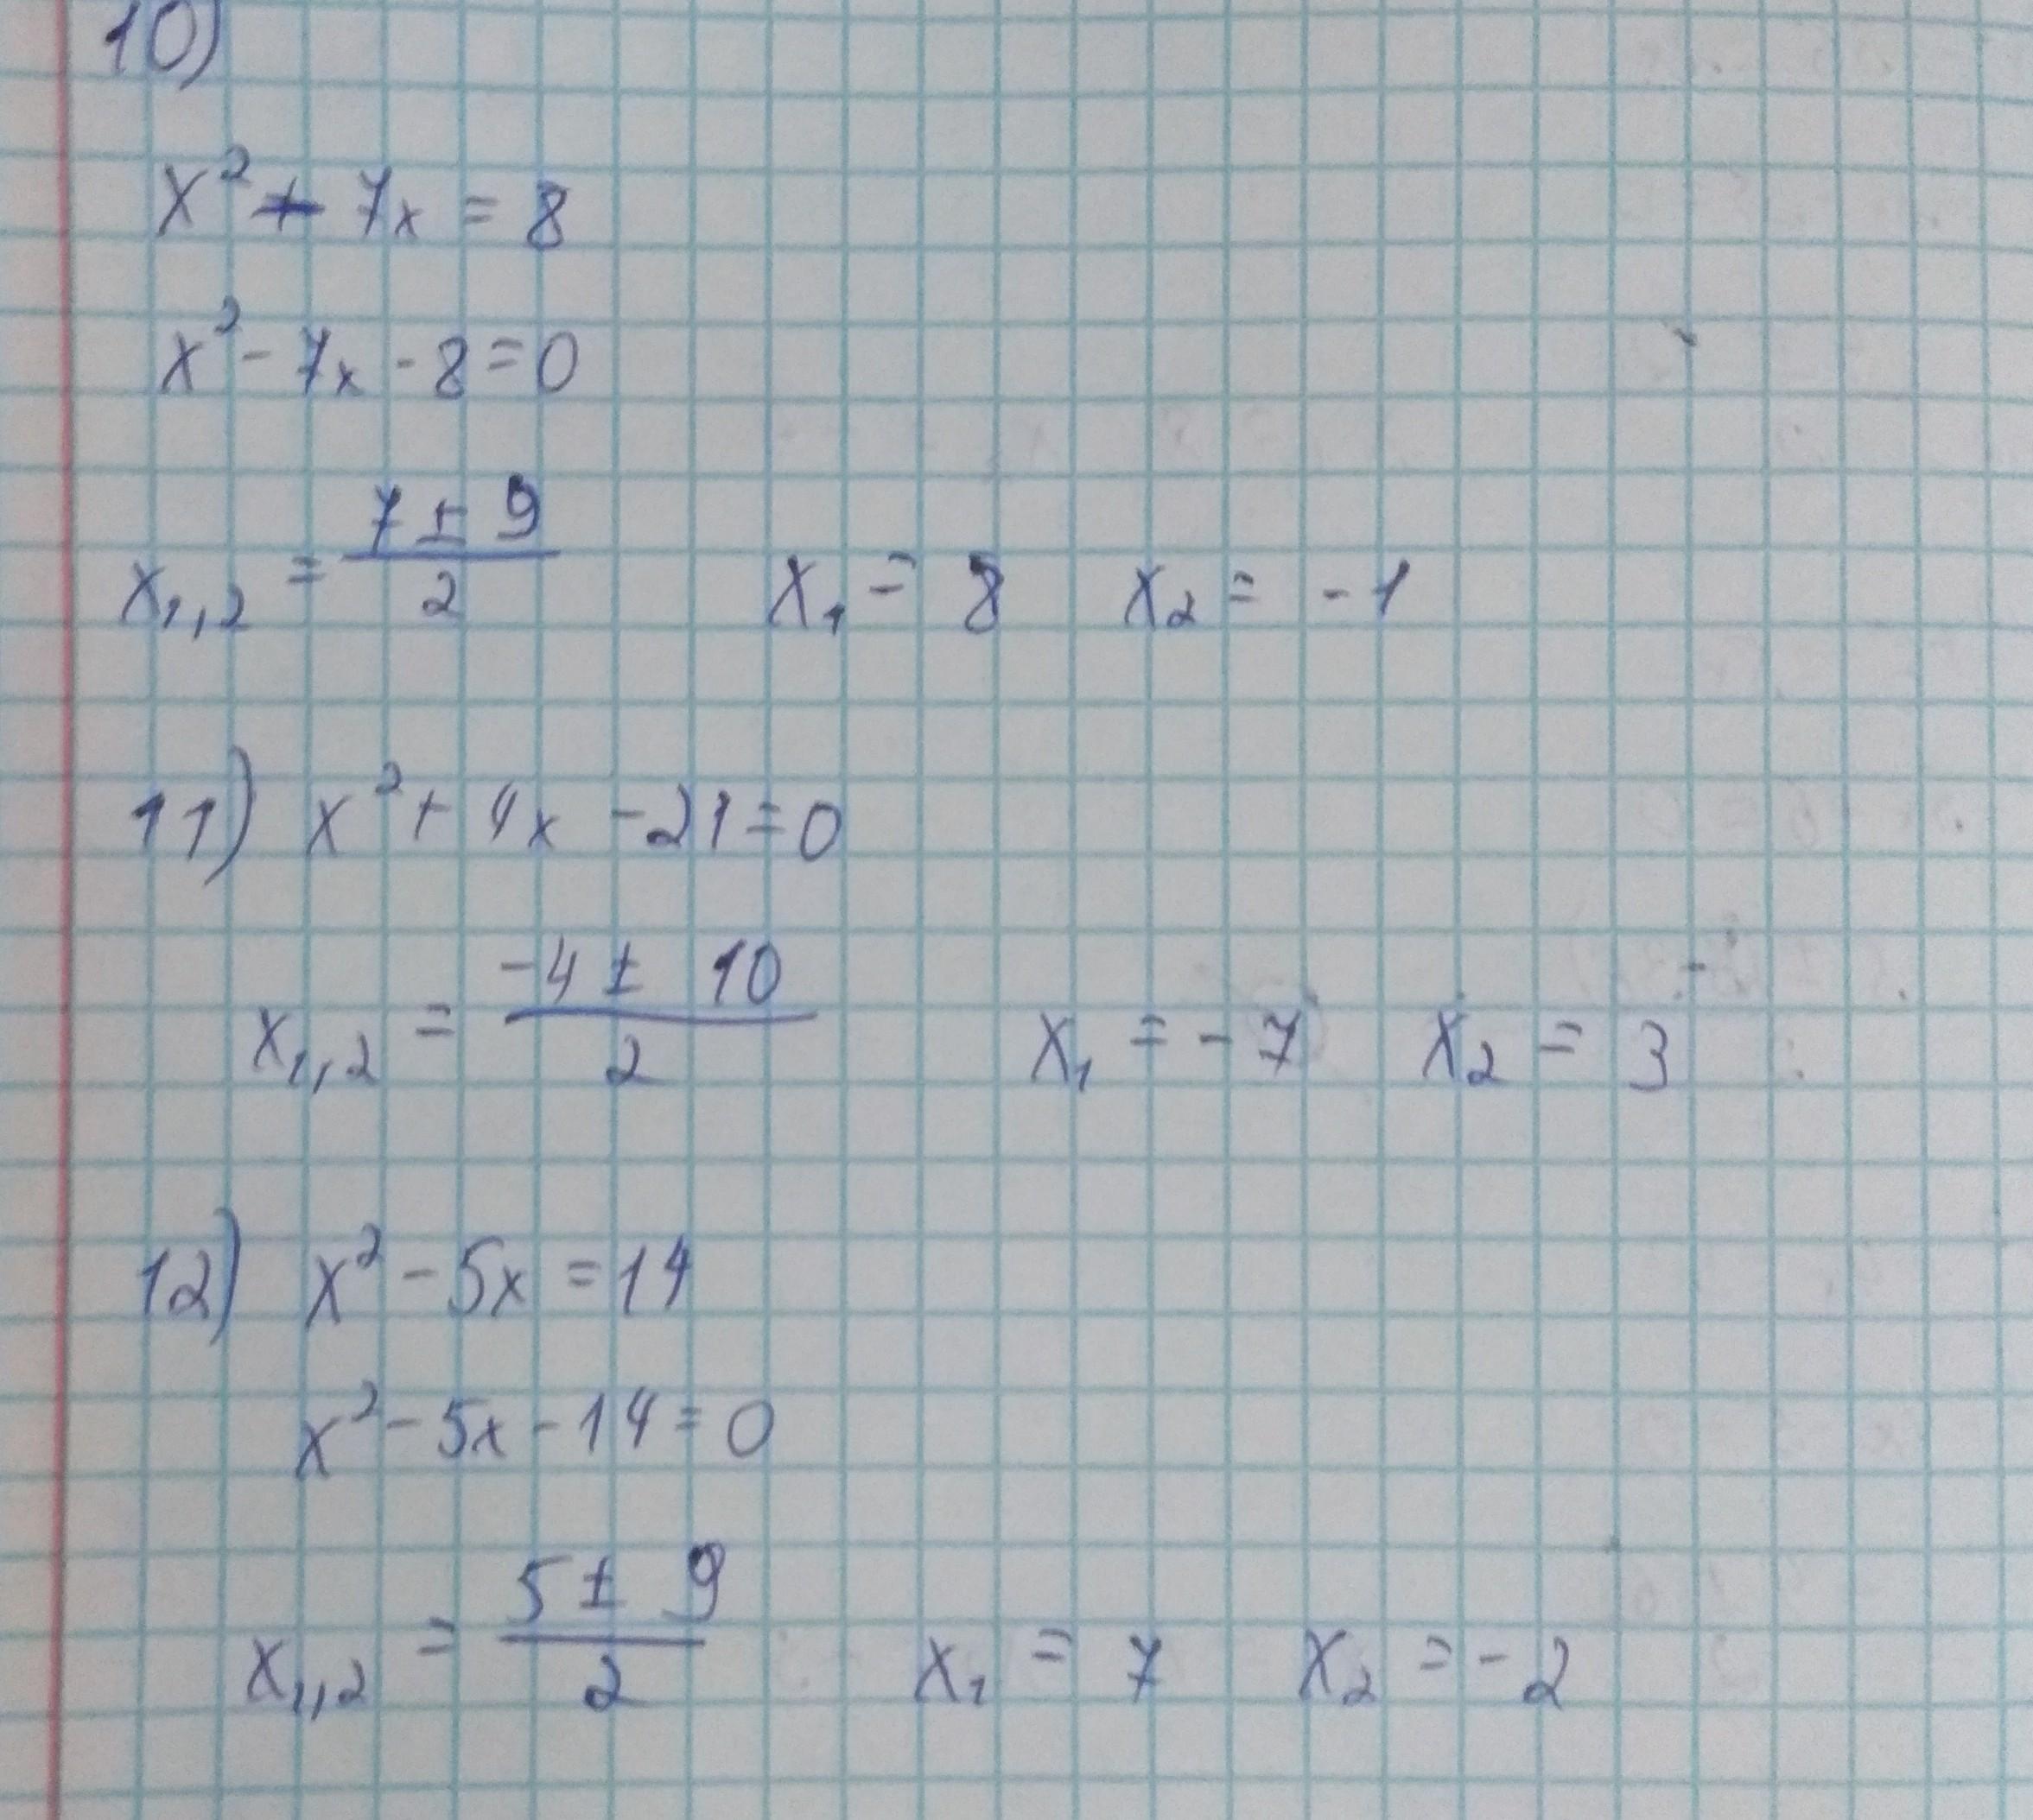 10)
x² + 7x = 8
x² - 7x - 8 = 0
x₁,₂ = (7 ± 9)/2   x₁ = 8   x₂ = -1
11) x² + 4x - 21 = 0
x₁,₂ = (-4 ± 10)/2   x₁ = -7   x₂ = 3
12) x² - 5x = 14
x² - 5x - 14 = 0
x₁,₂ = (5 ± 9)/2   x₁ = 7   x₂ = -2